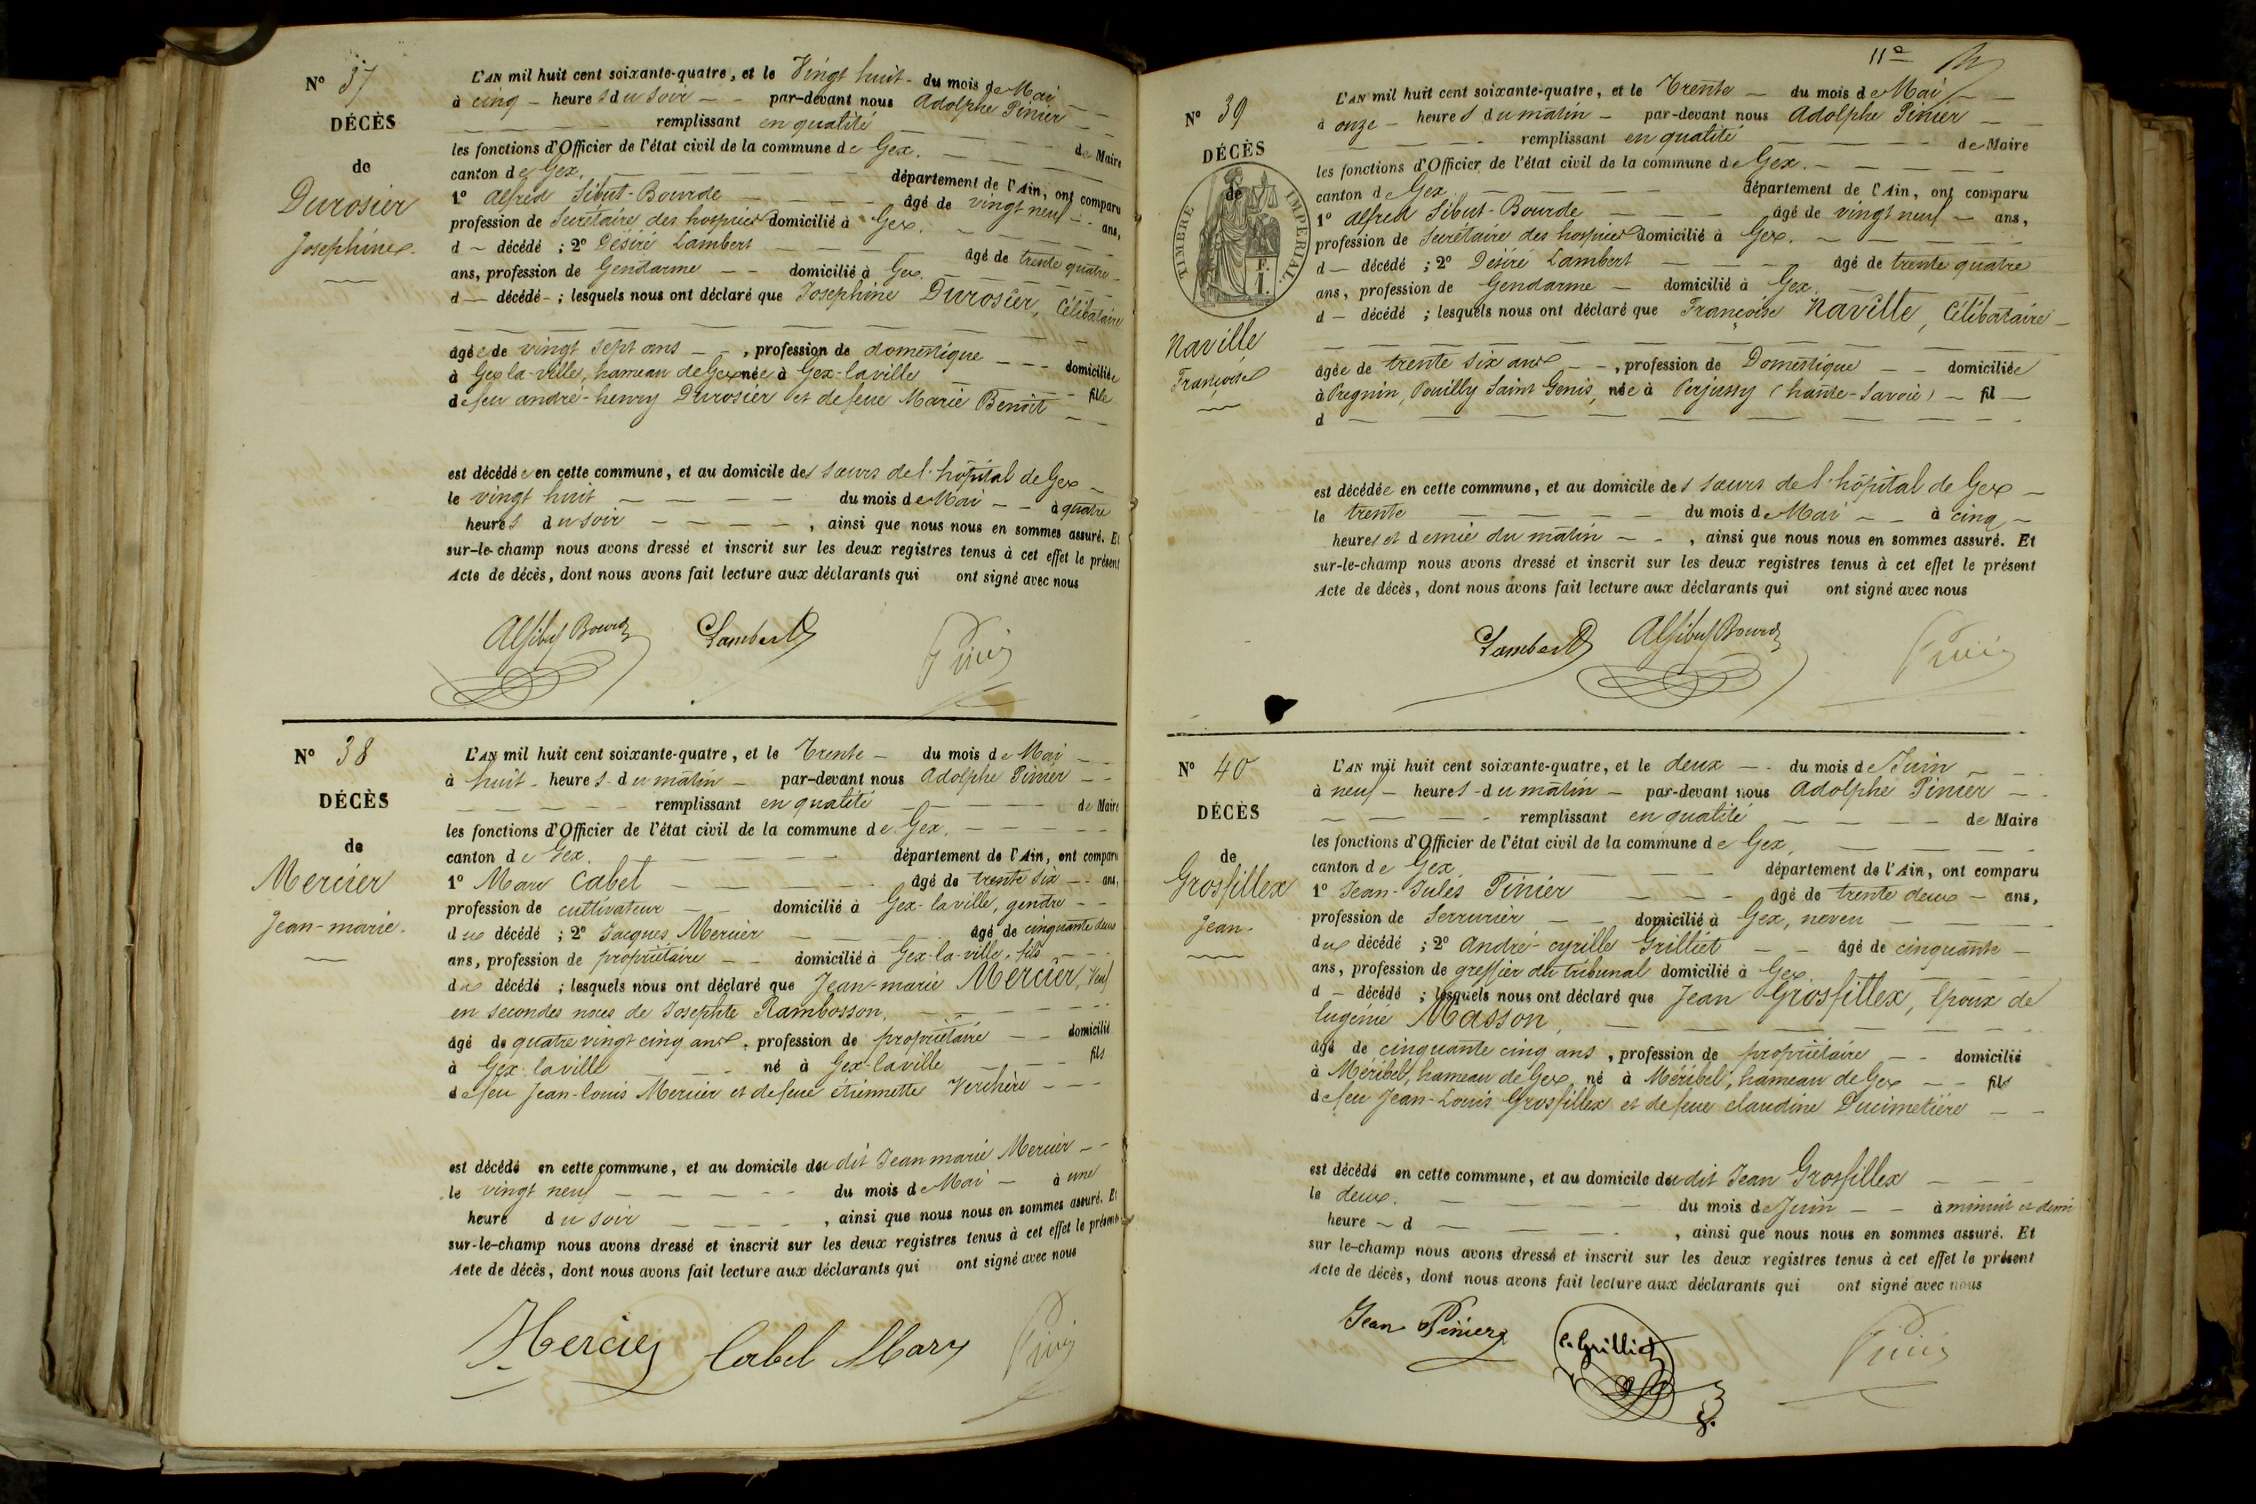 N° 37
DÉCÈS
de
Durosier
Josephine.
L'AN mil huit cent soixante-quatre, et le Vingt huit - du mois de Mai
à cinq - heures du soir - - par-devant nous Adolphe Pinier - -
remplissant en qualité de Maire
les fonctions d'Officier de l'état civil de la commune de Gex.
canton de Gex. département de l'Ain, ont comparu
1° Alfred Sibut-Bourde âgé de vingt neuf - - ans,
profession de Secrétaire des hospices domicilié à Gex.
d - décédé ; 2° Désiré Lambert âgé de trente quatre
ans, profession de Gendarme - - domicilié à Gex.
d - décédé - ; lesquels nous ont déclaré que Josephine Durosier, Célibataire
âgée de vingt sept ans - - , profession de domestique - - - domiciliée
à Gex la-ville, hameau de Gex née à Gex-laville - fille
de feu andré-henry Durosier et de feue Marie Benoit
est décédée en cette commune, et au domicile des sœurs de l'hôpital de Gex -
le vingt huit du mois de Mai - - à quatre
heures du soir , ainsi que nous nous en sommes assuré. Et
sur-le-champ nous avons dressé et inscrit sur les deux registres tenus à cet effet le présent
Acte de décès, dont nous avons fait lecture aux déclarants qui ont signé avec nous
Alf Sibut Bourde Lambert Pinier
N° 38
DÉCÈS
de
Mercier
Jean-marie.
L'AN mil huit cent soixante-quatre, et le Trente - du mois de Mai
à huit - heures du matin - par-devant nous Adolphe Pinier - -
remplissant en qualité de Maire
les fonctions d'Officier de l'état civil de la commune de Gex.
canton de Gex. département de l'Ain, ont comparu
1° Marc Cabet âgé de trente six - - ans,
profession de cultivateur - domicilié à Gex-laville, gendre - -
du décédé ; 2° Jacques Mercier âgé de cinquante deux
ans, profession de propriétaire - - domicilié à Gex-la-ville, fils
du décédé ; lesquels nous ont déclaré que Jean-marie Mercier, Veuf
en secondes noces de Josephte Rambosson,
âgé de quatre vingt cinq ans, profession de propriétaire - - domicilié
à Gex-laville né à Gex-laville - fils
de feu Jean-louis Mercier et de feue étiennette Verchère - - -
est décédé en cette commune, et au domicile du dit Jean marie Mercier - -
le vingt neuf du mois de Mai - à une
heure du soir , ainsi que nous nous en sommes assuré. Et
sur-le-champ nous avons dressé et inscrit sur les deux registres tenus à cet effet le présent
Acte de décès, dont nous avons fait lecture aux déclarants qui ont signé avec nous
Mercier Cabet Marc Pinier
11e
N° 39
DÉCÈS
de
TIMBRE IMPÉRIAL.
Naville
Françoise
L'AN mil huit cent soixante-quatre, et le Trente - du mois de Mai
à onze - heures du matin - par-devant nous Adolphe Pinier
remplissant en qualité de Maire
les fonctions d'Officier de l'état civil de la commune de Gex.
canton de Gex. département de l'Ain, ont comparu
1° Alfred Sibut-Bourde âgé de vingt neuf - ans,
profession de Secrétaire des hospices domicilié à Gex.
d - décédé ; 2° Désiré Lambert âgé de trente quatre
ans, profession de Gendarme - domicilié à Gex.
d - décédé ; lesquels nous ont déclaré que Françoise Naville, Célibataire -
âgée de trente six ans - - , profession de Domestique - - domiciliée
à Pregnin, Pouilly Saint Genis, née à Perjussy (haute-Savoie) - fil -
d
est décédée en cette commune, et au domicile des sœurs de l'hôpital de Gex -
le trente du mois de Mai - - à cinq -
heures et demie du matin - - , ainsi que nous nous en sommes assuré. Et
sur-le-champ nous avons dressé et inscrit sur les deux registres tenus à cet effet le présent
Acte de décès, dont nous avons fait lecture aux déclarants qui ont signé avec nous
Lambert Alf Sibut Bourde Pinier
N° 40
DÉCÈS
de
Grosfillex
Jean.
L'AN mil huit cent soixante-quatre, et le deux - - du mois de Juin
à neuf - heures du matin - par-devant nous Adolphe Pinier
remplissant en qualité de Maire
les fonctions d'Officier de l'état civil de la commune de Gex,
canton de Gex département de l'Ain, ont comparu
1° Jean-Jules Pinier âgé de trente deux - ans,
profession de Serrurier - - domicilié à Gex, neveu
du décédé ; 2° André-cyrille Grilliet - - âgé de cinquante -
ans, profession de greffier du tribunal domicilié à Gex.
d - décédé ; lesquels nous ont déclaré que Jean Grosfillex, Epoux de
Eugénie Masson,
âgé de cinquante cinq ans, profession de propriétaire - - domicilié
à Méribel, hameau de Gex, né à Méribel, hameau de Gex - - fils
de feu Jean-Louis Grosfillex et de feue claudine Ducimetière - -
est décédé en cette commune, et au domicile du dit Jean Grosfillex
le deux. du mois de Juin - - à minuit et demi
heure - d , ainsi que nous nous en sommes assuré. Et
sur le-champ nous avons dressé et inscrit sur les deux registres tenus à cet effet le présent
Acte de décès, dont nous avons fait lecture aux déclarants qui ont signé avec nous
Jean Pinier C. Grilliet Pinier